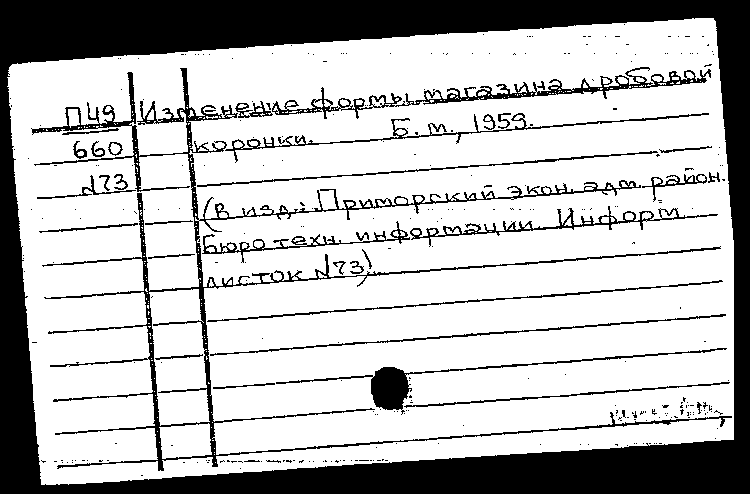 П49 Изменение формы магазина дробовой
660 коронки. Б. м., 1959.
№73
(В изд.: Приморский экон. адм. район.
Бюро техн. информации. Информ.
листок №73).